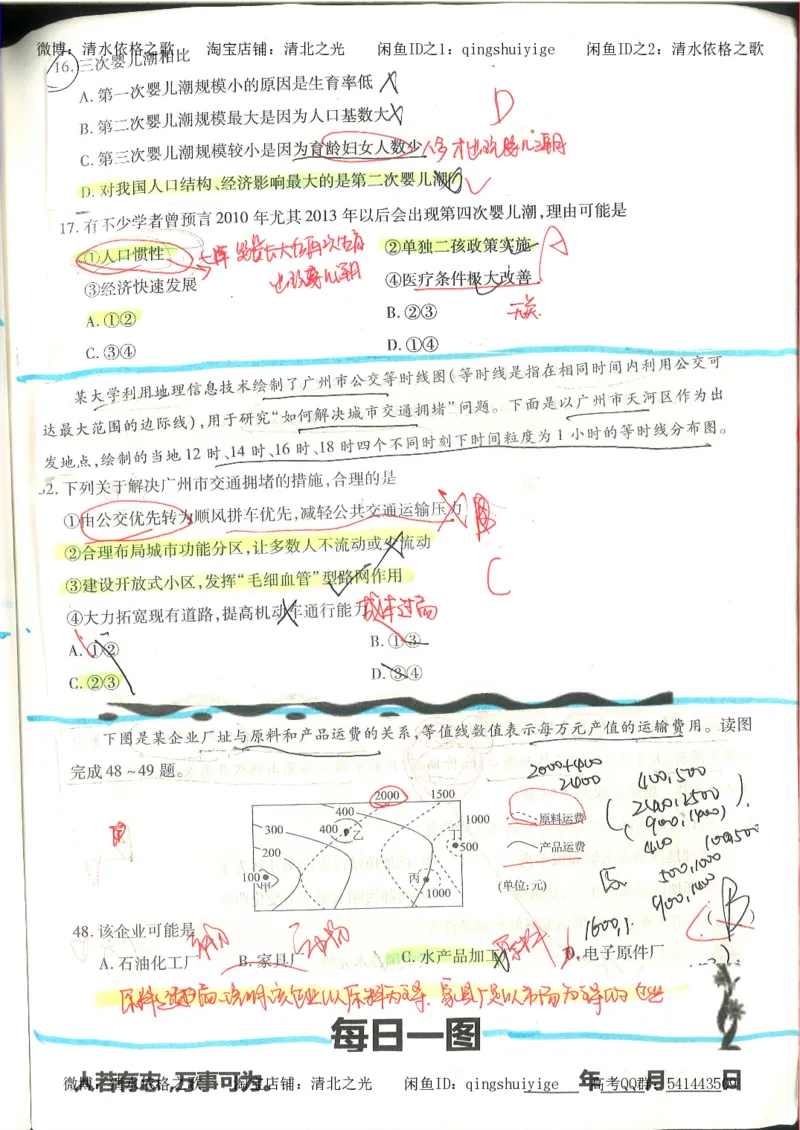 微博：清水依格之歌 淘宝店铺：清北之光 闲鱼ID之1：qingshuiyige 闲鱼ID之2：清水依格之歌
16.三次婴儿潮相比
A.第一次婴儿潮规模小的原因是生育率低
B.第二次婴儿潮规模最大是因为人口基数大
D
C.第三次婴儿潮规模较小是因为育龄妇女人数少
D.对我国人口结构、经济影响最大的是第二次婴儿潮
17.有不少学者曾预言2010年尤其2013年以后会出现第四次婴儿潮,理由可能是
①人口惯性 ②单独二孩政策实施 A
③经济快速发展 ④医疗条件极大改善
A.①② B.②③ 无关
C.③④ D.①④
某大学利用地理信息技术绘制了广州市公交等时线图(等时线是指在相同时间内利用公交可
达最大范围的边际线),用于研究“如何解决城市交通拥堵”问题。下面是以广州市天河区作为出
发地点,绘制的当地12时、14时、16时、18时四个不同时刻下时间粒度为1小时的等时线分布图。
52.下列关于解决广州市交通拥堵的措施,合理的是
①由公交优先转为顺风拼车优先,减轻公共交通运输压力
②合理布局城市功能分区,让多数人不流动或少流动
③建设开放式小区,发挥“毛细血管”型路网作用 C
④大力拓宽现有道路,提高机动车通行能力 成本过高
A.①② B.①③
C.②③ D.③④
下图是某企业厂址与原料和产品运费的关系,等值线数值表示每万元产值的运输费用。读图
完成48~49题。
2000+400
2400
400,500
2000 1500
400 1000
300 400 乙 丁 500
200
100 甲 丙 1000
原料运费
产品运费
(单位:元)
甲
(B)
48.该企业可能是
A.石油化工厂 B.家具厂 C.水产品加工厂 D.电子原件厂
原料 石油 原料
原料运费高,说明该企业以原料为主导.家具厂是以市场为主导的企业
每日一图
人若有志,万事可为。 年 月 日
微博：清水依格之歌 淘宝店铺：清北之光 闲鱼ID：qingshuiyige 高考QQ群：541443509